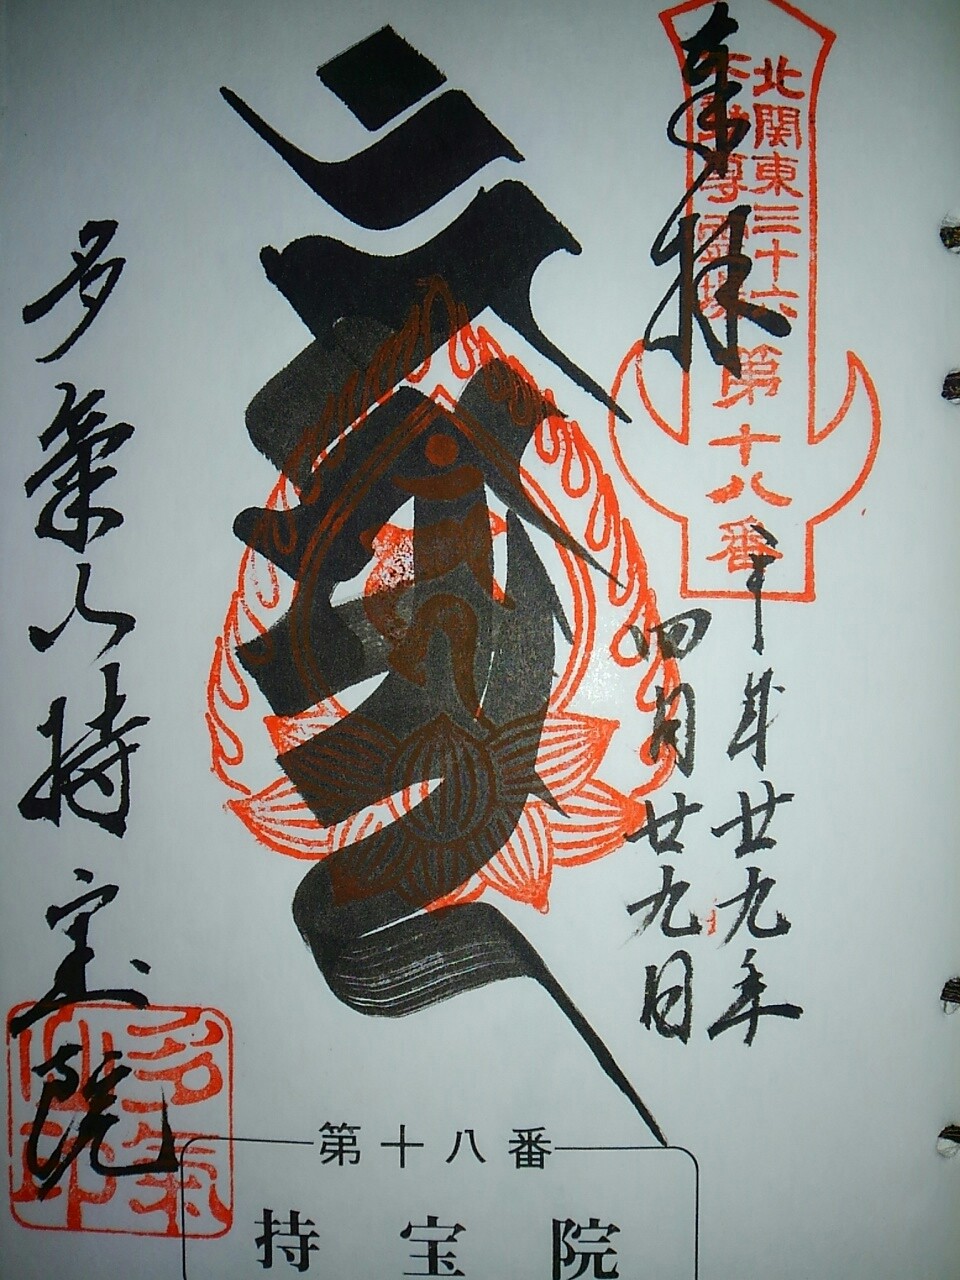 奉拝
北関東三十六
不動尊霊場
第十八番
平成廿九年
四月廿九日
多氣山持宝院
多氣
山印
第十八番
持宝院